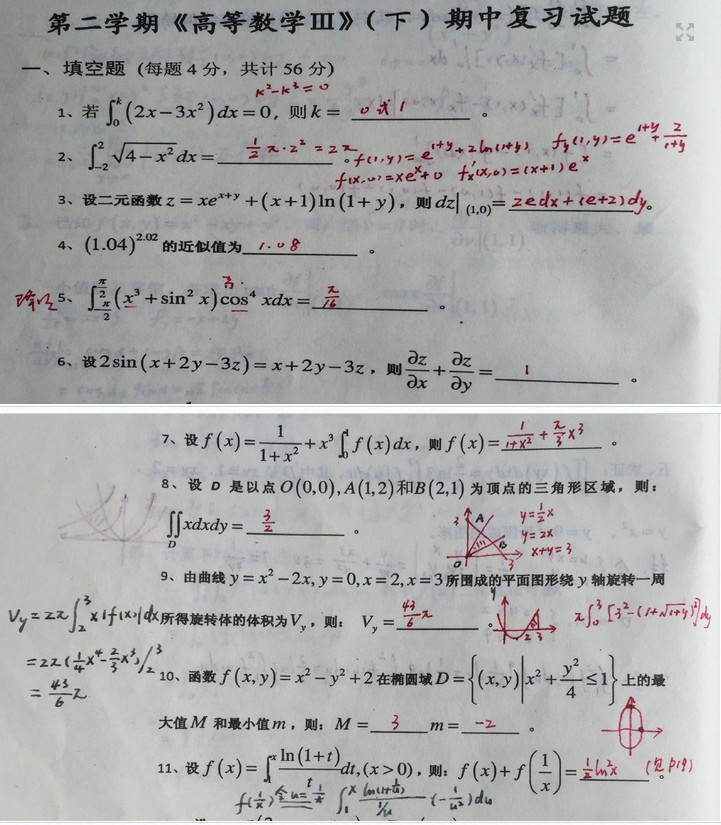 第二学期《高等数学Ⅲ》（下）期中复习试题
一、填空题（每题4分，共计56分）
k²-k³=0
1、若 ∫₀ᵏ(2x-3x²)dx=0，则k= 0或1 。
2、∫₋₂²√(4-x²)dx= ½π·2²=2π 。 f(1,y)=e^(1+y)+2ln(1+y) f_y(1,y)=e^(1+y)+2/(1+y)
f(x,0)=xe^x+0 f'_x(x,0)=(x+1)e^x
3、设二元函数z=xe^(x+y)+(x+1)ln(1+y)，则dz|(1,0)= 2edx+(e+2)dy。
4、(1.04)^2.02 的近似值为 1.08 。
5、∫_(-π/2)^(π/2)(x³+sin²x)cos⁴xdx= π/16 。
6、设2sin(x+2y-3z)=x+2y-3z，则 ∂z/∂x+∂z/∂y= 1 。
7、设f(x)=1/(1+x²)+x³∫₀¹f(x)dx，则f(x)= 1/(1+x²)+π/3 x³ 。
8、设D是以点O(0,0),A(1,2)和B(2,1)为顶点的三角形区域，则：
∬_D xdxdy= 3/2 。 3 A B O 3 y=½x
y=2x
x+y=3
9、由曲线y=x²-2x,y=0,x=2,x=3所围成的平面图形绕y轴旋转一周
V_y=2π∫₂³x|f(x)|dx 所得旋转体的体积为V_y，则：V_y= 43/6 π 。 y 2 3 π∫₀³[3²-(1+√(1+y))²]dy
=2π(¼x⁴-⅔x³)/₂³
=43/6 π
10、函数f(x,y)=x²-y²+2在椭圆域D={(x,y)|x²+y²/4≤1}上的最
大值M和最小值m，则：M= 3 m= -2 。
11、设f(x)=∫₁ˣ ln(1+t)/t dt,(x>0)，则：f(x)+f(1/x)= ½ln²x 。 (见P19)
f(1/x) 令u=1/t ∫₁ˣ ln(1+1/u)/(1/u) (-1/u²)du